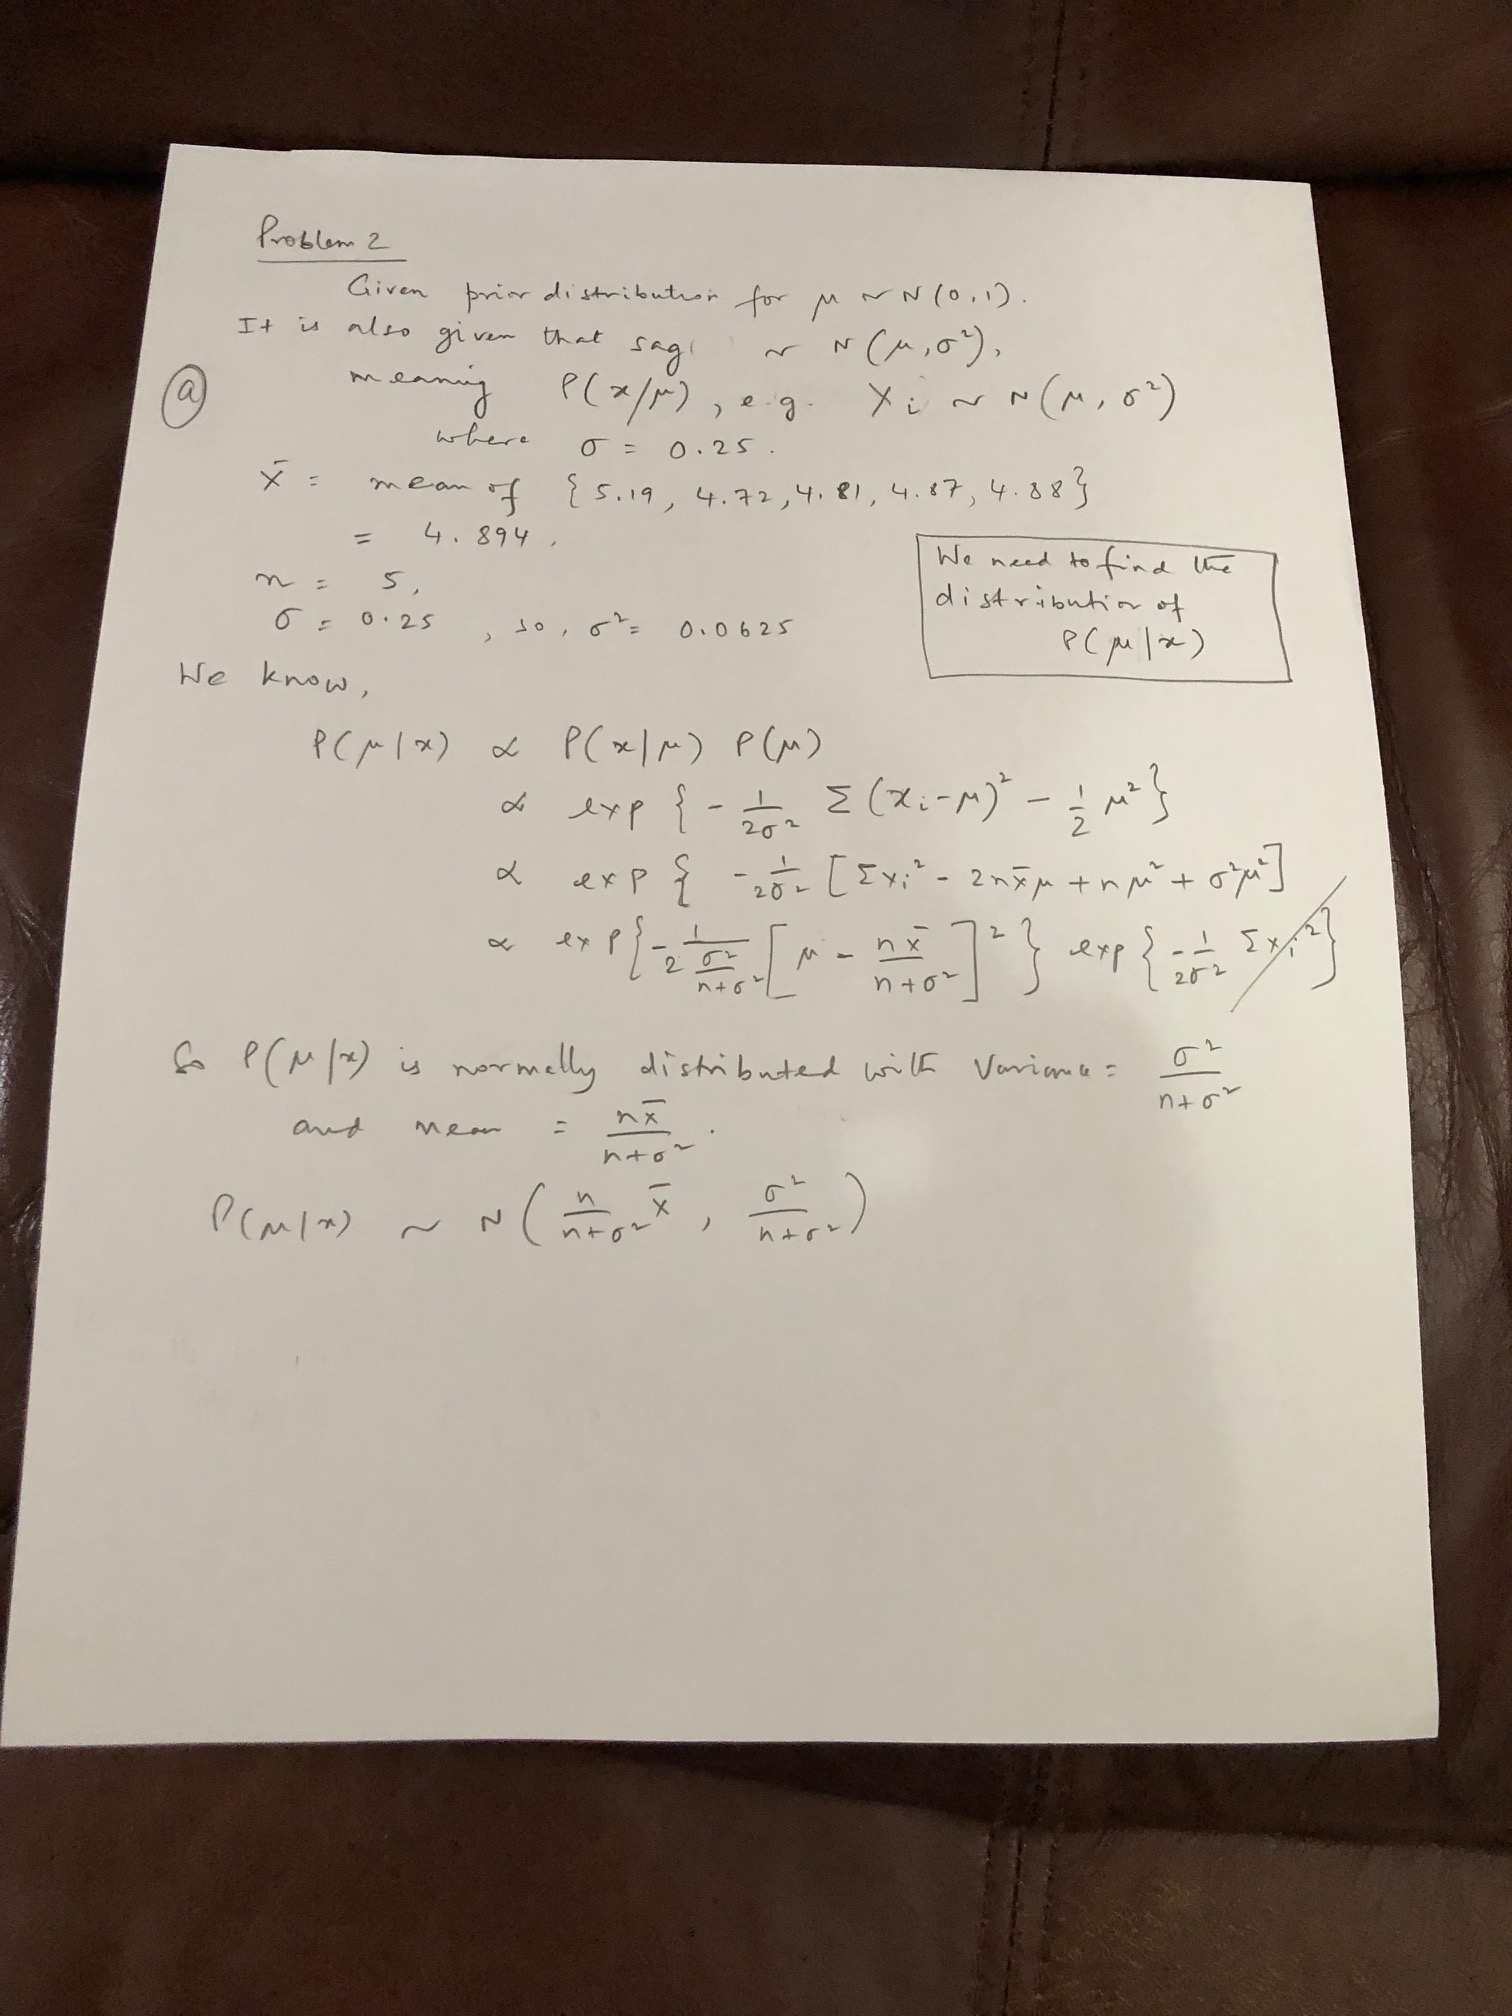 Problem 2
Given prior distribution for μ ~ N(0,1).
It is also given that sag ~ N(μ,σ²),
(a) meaning P(x/μ), e.g. Xi ~ N(μ, σ²)
where σ = 0.25.
x̄ = mean of {5.19, 4.72, 4.81, 4.87, 4.88}
= 4.894,
n = 5,
σ = 0.25, so, σ² = 0.0625
We need to find the
distribution of
P(μ|x)
We know,
P(μ|x) ∝ P(x|μ) P(μ)
∝ exp {-1/2σ² Σ(xi-μ)² - 1/2 μ²}
∝ exp { -1/2σ² [Σxi² - 2nx̄μ + nμ² + σ²μ²]
∝ exp{-1/(2 σ²/(n+σ²)) [μ - nx̄/(n+σ²)]²} exp{-1/2σ² Σxi²}
So P(μ|x) is normally distributed with Variance = σ²/(n+σ²)
and mean = nx̄/(n+σ²).
P(μ|x) ~ N(n/(n+σ²) x̄, σ²/(n+σ²))